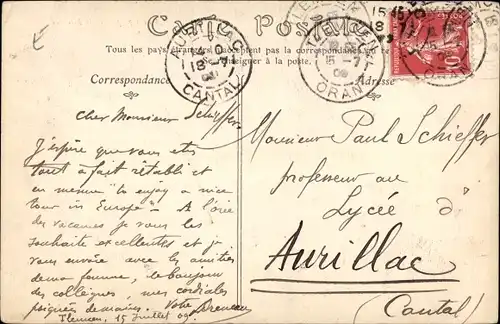 Carte Postale
Tous les pays étrangers n'acceptent pas la correspondance au recto
se renseigner à la poste.
Correspondance
Adresse
AURILLAC
18 -7
09
CANTAL
15 -7
09
ORAN
10
Cher Monsieur Schieffer
J'espère que vous êtes
tout à fait rétabli et
en mesure "to enjoy a nice
tour in Europe" - A l'orée
des vacances je vous les
souhaite excellentes et je
vous envoie avec les amitiés
de ma femme, le bonjour
des collègues, mes cordiales
poignées de mains. Votre
Tlemcen, 15 juillet 09.
Monsieur Paul Schieffer
professeur au
Lycée d'
Aurillac
(Cantal)